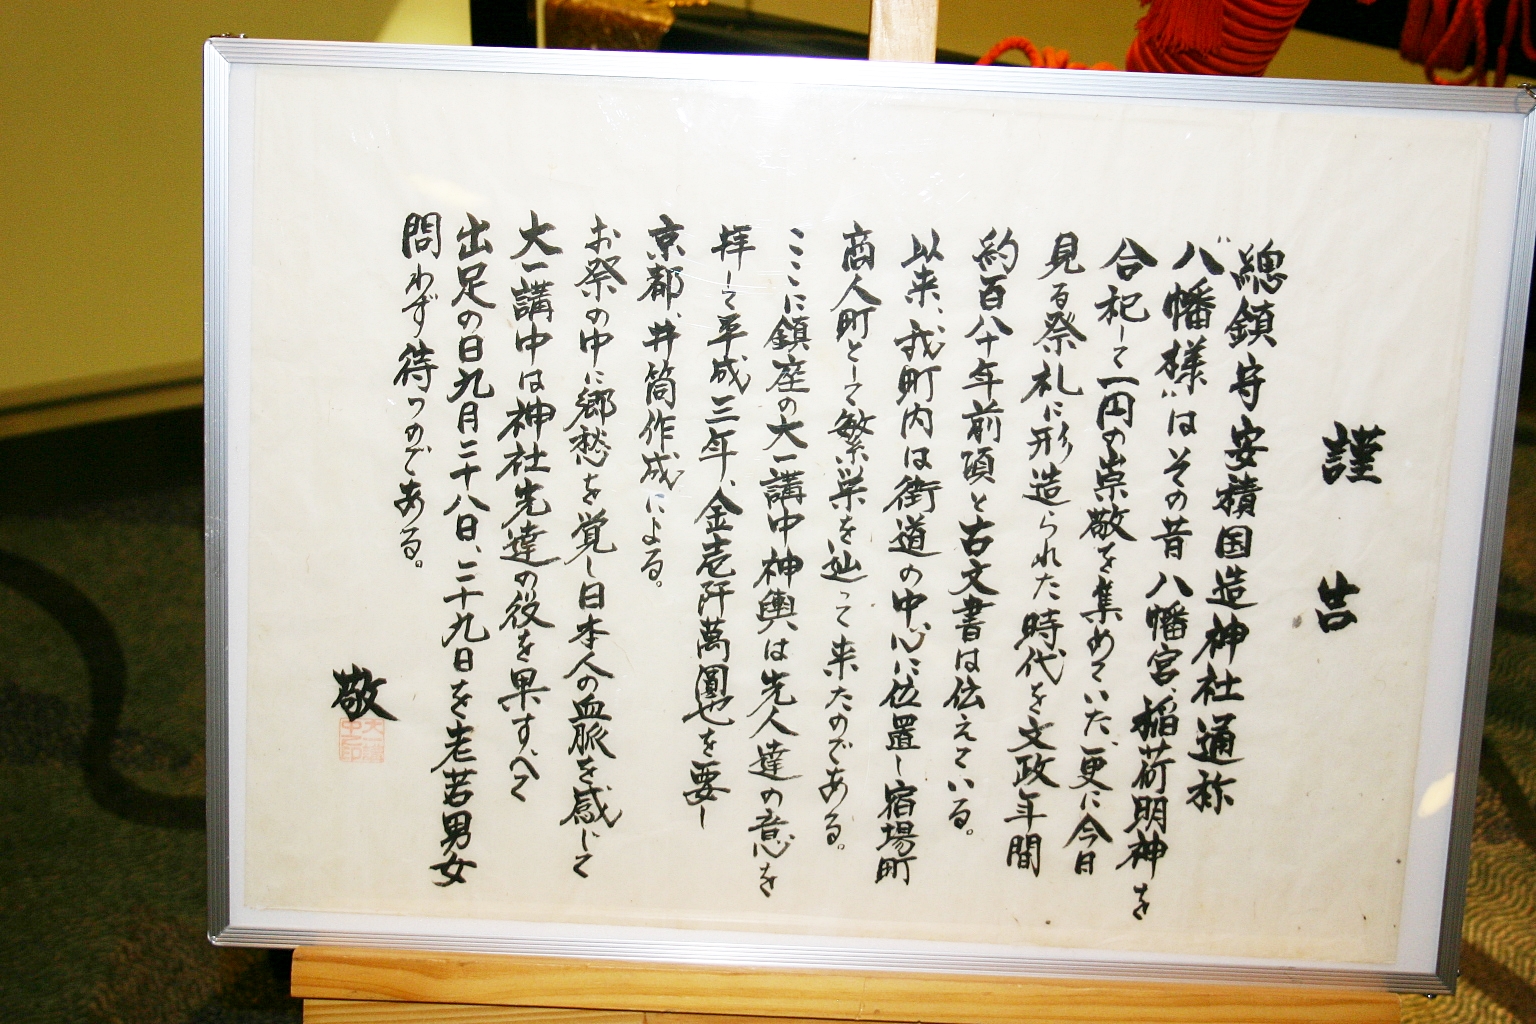 謹告
總鎮守安積国造神社通称
"八幡様"はその昔八幡宮、稲荷明神を
合祀して一円の崇敬を集めていた、更に今日
見る祭礼に形造られた時代を文政年間
約百八十年前頃と古文書は伝えている。
以来、我町内は街道の中心に位置し宿場町
商人町として繁栄を辿って来たのである。
ここに鎮座の大一講中神輿は先人達の意心を
拝して平成三年、金壱阡萬圓也を要し
京都、井筒作成による。
お祭の中に郷愁を覚し日本人の血脈を感じて
大一講中は神社先達の役を果すべて
出足の日九月二十八日、二十九日を老若男女
問わず待つのである。
敬
大一講中印